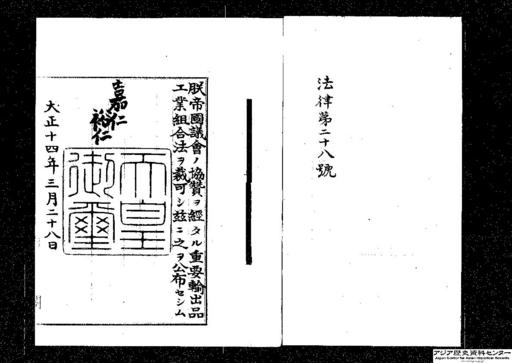 法律第二十八號
朕帝國議會ノ協贊ヲ經タル重要輸出品
工業組合法ヲ裁可シ茲ニ之ヲ公布セシム
嘉仁
裕仁
天皇
御璽
大正十四年三月二十八日
アジア歴史資料センター
Japan Center for Asian Historical Records